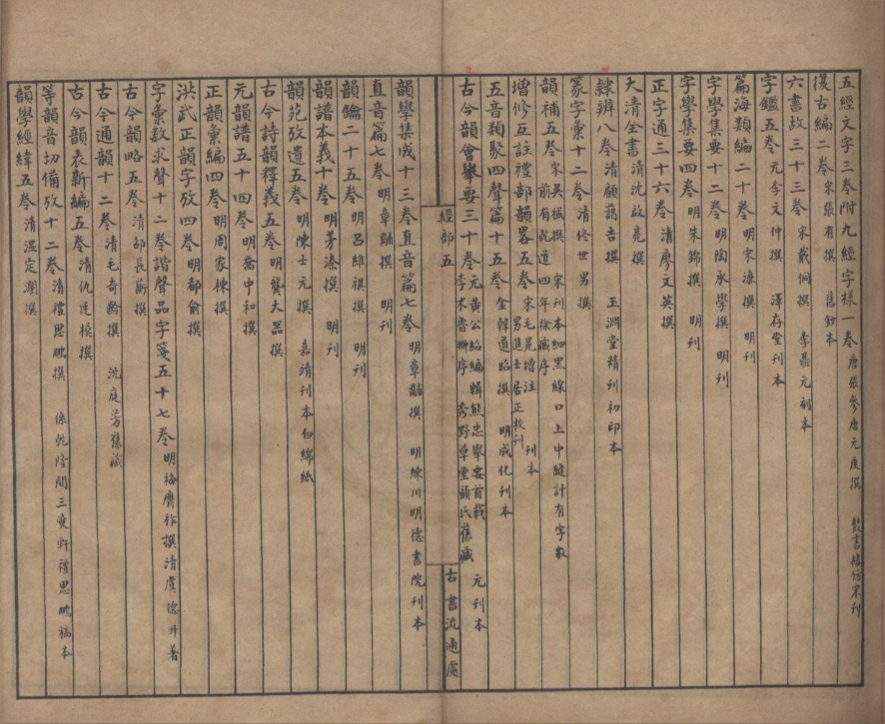 五經文字三卷附九經字樣一卷 唐張參唐元度撰 仿宋刊
復古編二卷 宋張有撰 舊鈔本
六書故三十三卷 宋戴侗撰 李鼎元刻本
字鑑五卷 元李文仲撰 澤存堂刊本
篇海類編二十卷 明宋濂撰 明刊
字學集要十二卷 明陶承學撰 明刊
字學集要四卷 明朱錦撰 明刊
正字通三十六卷 清廖文英撰
大清全書 清沈啟亮撰
隸辨八卷 清顧藹吉撰 玉淵堂精刊初印本
篆字彙十二卷 清佟世男撰
韻補五卷 宋吳棫撰 前有乾道四年徐蕆序 宋刊本細黑線口上中縫計有字數
增修互註禮部韻畧五卷 宋毛晃增注 男進士居正校刊 刊本
五音類聚四聲篇十五卷 金韓道昭撰 明成化刊本
古今韻會舉要三十卷 元黃公紹編輯熊忠舉要首載 李本書聯序 秀野草堂顧氏舊藏 元刊本
經部五
古書流通處
韻學集成十三卷直音篇七卷 明章黼撰 明練川明德書院刊本
直音篇七卷 明章黼撰 明刊
韻鑰二十五卷 明呂維祺撰 明刊
韻譜本義十卷 明茅溱撰 明刊
韻苑攷遺五卷 明陳士元撰 嘉靖刊本白綿紙
古今詩韻釋義五卷 明龔大器撰
元韻譜五十四卷 明喬中和撰
正韻彙編四卷 明周家棟撰
洪武正韻字攷四卷 明都俞撰
字彙數求聲十二卷諧聲品字箋五十七卷 明梅膺祚撰清虞德升著
古今韻略五卷 清邵長蘅撰
古今通韻十二卷 清毛奇齡撰 沈庭芳舊藏
古今韻表新編五卷 清仇廷模撰
等韻音切備攷十二卷 清禮思鵬撰 係乾隆間三愛軒禮思鵬稿本
韻學經緯五卷 清溫定瀾撰